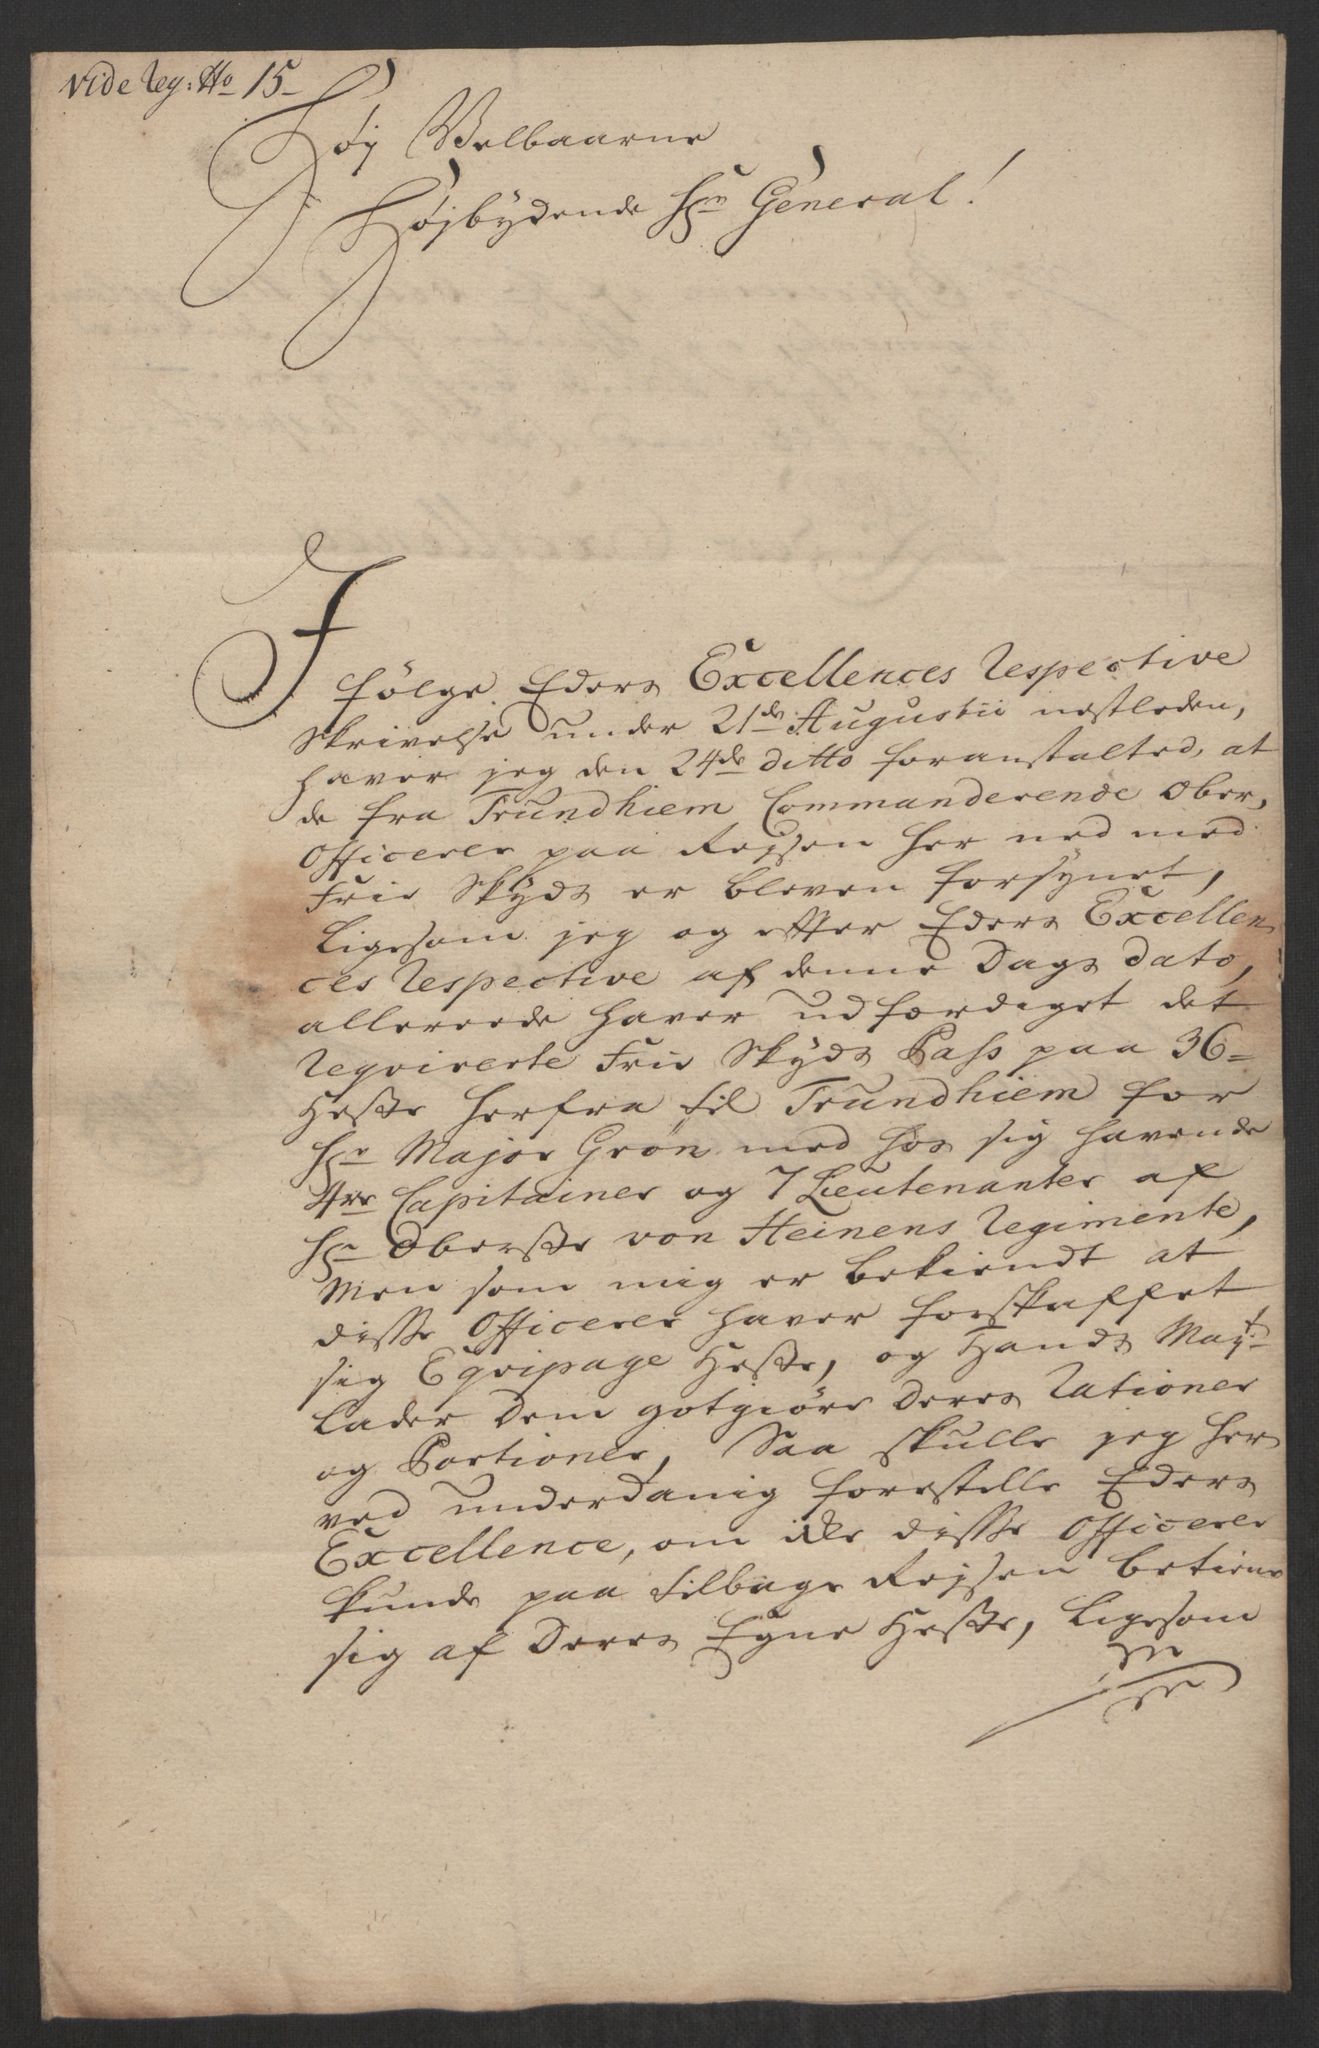 Vide Reg: No 15-
Høy Velbaarne
Højbÿdende Hr. General!
I
følge Eders Excellences Respective
Skrivelse under 21de Augustii nestleden,
haver jeg den 24de ditto foranstalted, at
de fra Trundhiem Commanderende Ober,
Officerer paa Rejsen her ned med
Frie Skÿds er bleven forsynet,
Ligesom jeg og efter Eders Excellen
ces Respective af denne Dags dato,
allereede haver udfærdiget det
reqvirerte Frie Skÿds Pass paa 36=
Heste herfra til Trundhiem for
Hr Major Grøn med hos sig havende
4re Capitainer og 7 Lieutenanter af
Hr Oberste von Heinens Regimente,
Men som mig er bekiendt at
disse Officerer haver forskaffet
sig Eqvipage Heste, og Hands Mayt
lader dem gotgiøre deres Rationer
og Portioner, Saa skulle jeg her
ved underdanig forestille Eders
Excellence, om ikke disse Officerer
kunde paa tilbage Rejsen betiene
sig af deres Egne Heste, Ligesom